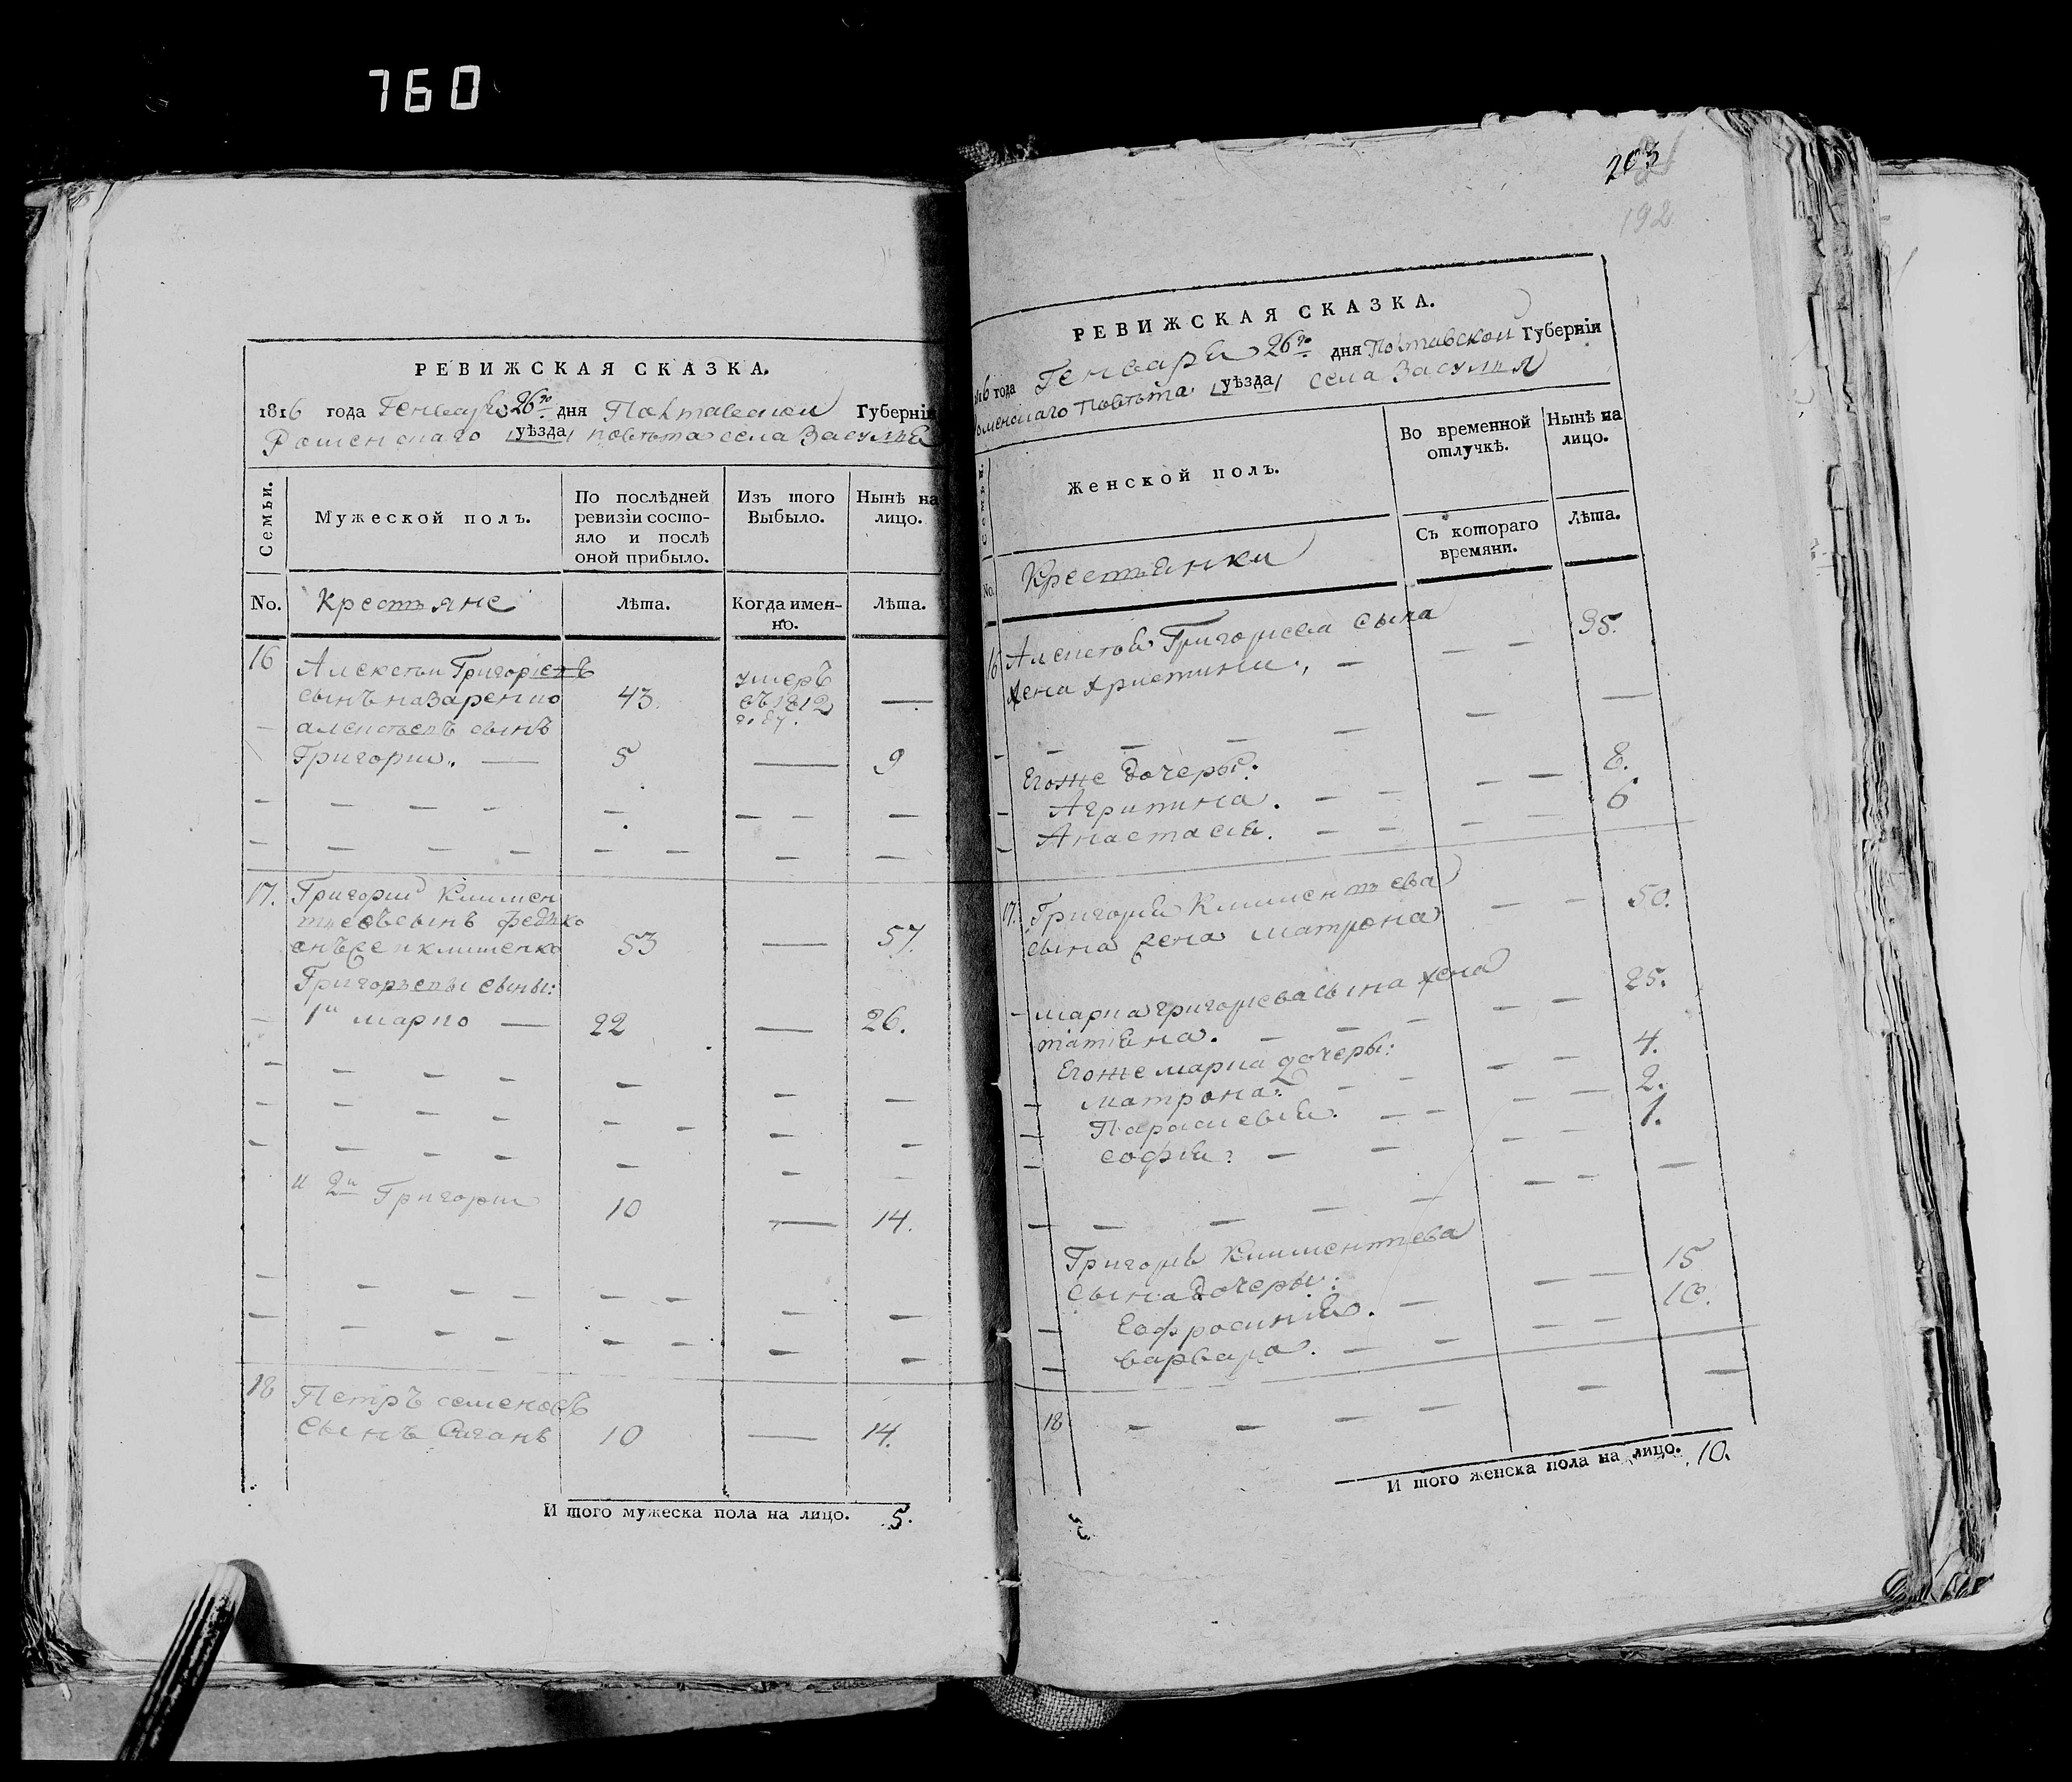 760
РЕВИЖСКАЯ СКАЗКА.
1816 года Генваря 26го дня Полтавской Губерніи
Роменскаго уѣзда повѣта села Засулья
Семьи.
Мужеской полъ.
По послѣдней ревизіи состояло и послѣ оной прибыло.
Изъ того Выбыло.
Нынѣ на лицо.
No.
Крестьяне
Лѣта.
Когда именно.
Лѣта.
16 Алексѣй Григорьевъ умеръ
сынъ назаренко 43. въ 1812 —
алексѣевъ сынъ году.
Григорий. — 5 — 9
17. Григорий Климен
тьевъ сынъ
53 — 57.
Григорьевы сыны:
1й марко — 22 — 26.
и 2й Григорий 10 — 14.
18 Петръ семеновъ
сынъ 10 — 14.
И того мужеска пола на лицо. 5.
203
192
РЕВИЖСКАЯ СКАЗКА.
1816 года Генваря 26го дня Полтавской Губерніи
Роменскаго Повѣта уѣзда села Засулья
Женской полъ.
Во временной отлучкѣ.
Нынѣ на лицо.
Съ котораго времяни.
Лѣта.
No.
Крестьянки
16 Алексѣя Григорьева сына
жена христина, — — — 35.
Егоже дочеры:
Агрипина. — — — — 8.
Анастасія. — — — — 6
17. Григорія Климентьева
сына жена матрона — — 50.
марка григорьева сына жена
татіана. — — — — — 25.
Егоже марка дочеры:
матрона: — — — — 4.
Параскевія. — — — — 2.
софія: — — — — 1.
Григорія Климентьева
сына дочеры:
Еофросинія. — — — 15
варвара. — — — — 10.
18 — — — — — —
И того женска пола на лицо. 10.